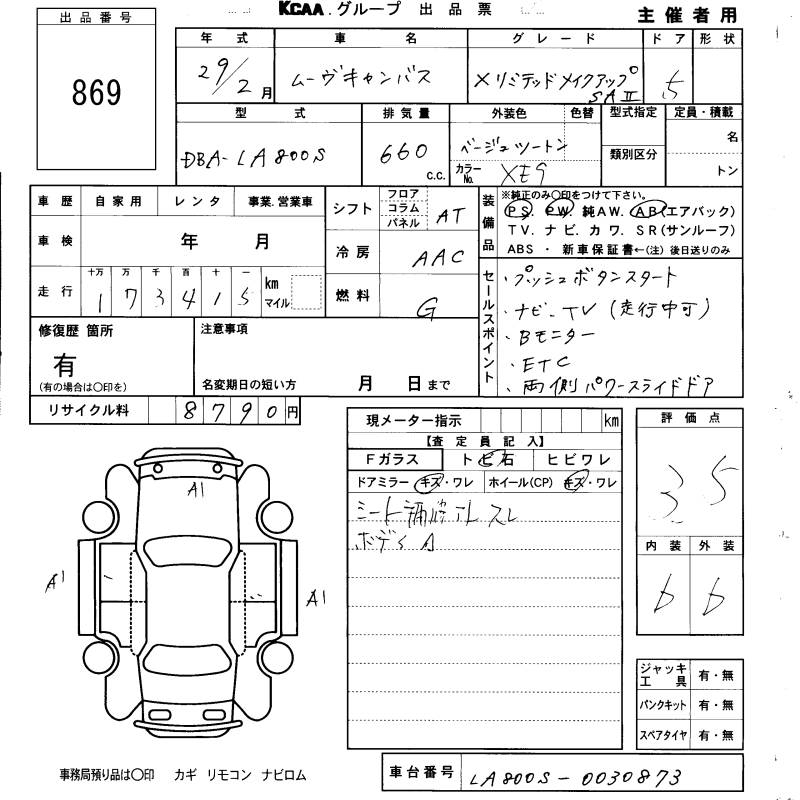 KCAA.グループ 出品票
主催者用
出品番号
869
年式 車名 グレード ドア 形状
29/2月 ムーヴキャンバス Xリミテッドメイクアップ SAⅡ 5
型式 排気量 外装色 色替 型式指定 定員・積載
DBA-LA800S 660 c.c. ベージュツートン 名
類別区分
カラーNo. XE9 トン
車歴 自家用 レンタ 事業.営業車
シフト フロア コラム パネル AT
装備品 ※純正のみ〇印をつけて下さい。
PS. PW. 純AW. AB(エアバック)
TV. ナビ. カワ. SR(サンルーフ)
ABS ・ 新車保証書←(注)後日送りのみ
車検 年 月
冷房 AAC
走行 十万 万 千 百 十 一 km マイル
1 7 3 4 1 5
燃料 G
セールスポイント
・プッシュボタンスタート
・ナビ、TV (走行中可)
・Bモニター
・ETC
・両側パワースライドドア
修復歴 箇所
有
(有の場合は〇印を)
注意事項
名変期日の短い方 月 日まで
リサイクル料 8790円
現メーター指示 km
【査定員記入】
Fガラス ト ビ石 ヒビワレ
ドアミラー キズ・ワレ ホイール(CP) キズ・ワレ
シート
スレ
ボディ A
評価点
3.5
内装 外装
b b
A1
A1
A1
ジャッキ工具 有・無
パンクキット 有・無
スペアタイヤ 有・無
事務局預り品は〇印 カギ リモコン ナビロム
車台番号 LA800S-0030873